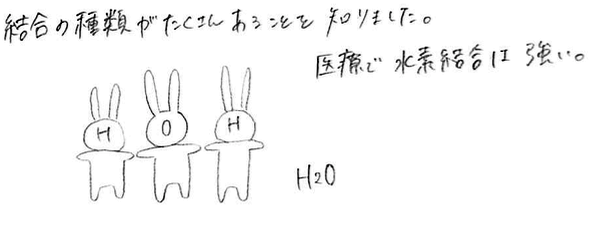 結合の種類がたくさんあることを知りました。
医療で水素結合は強い。
H O H
H2O